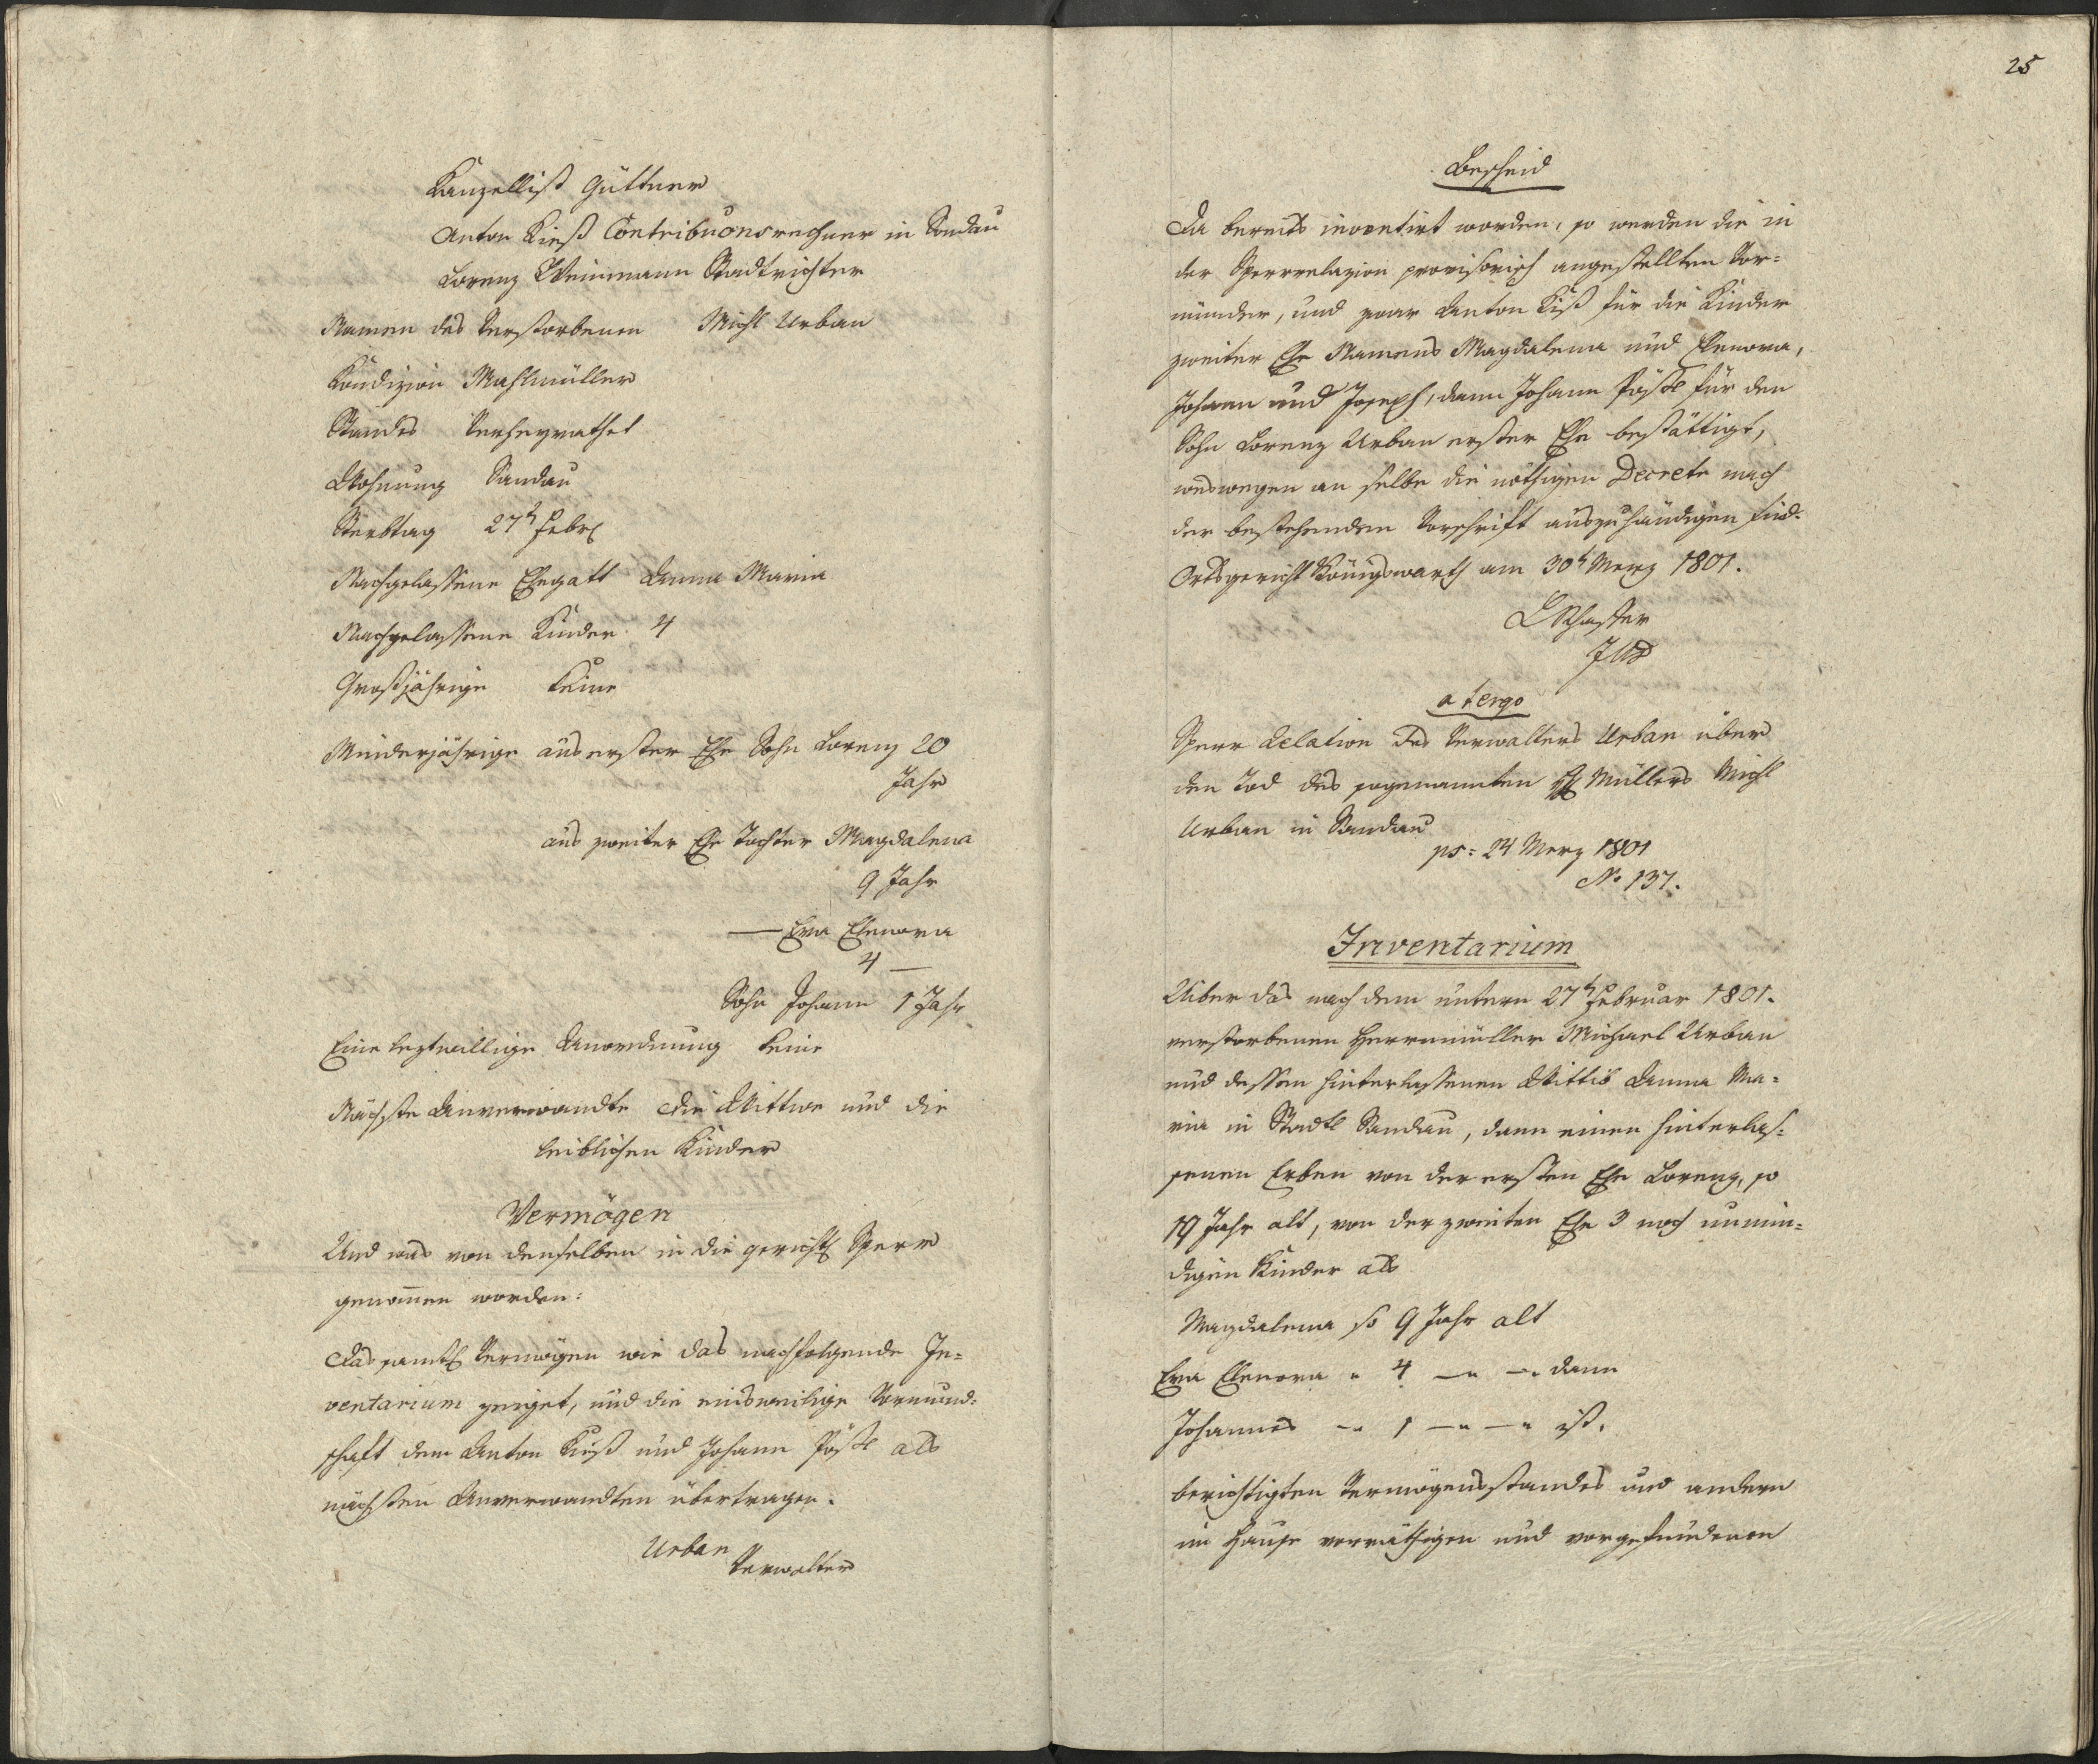 Kanzellist Güttner
Anton Kieß Contribuonsrechner in Sandau
Lorenz Weinmann Stadtrichter
Namen des Verstorbenen Michl Urban
Kondizion Mahlmüller
Standes Verheyrathet
Wohnung Sandau
Sterbtag 27t Febr
Nachgelassene Ehegatt Anna Maria
Nachgelassene Kinder 4
Großjährige keine
Minderjährige aus erster Ehe Sohn Lorenz 20
Jahr
aus zweiter Ehe Tochter Magdalena
9 Jahr
— Eva Elenora
4 —
Sohn Johann 1 Jahr
Eine leztwillige Anordnung keine
Nächste Anverwandte die Wittwe und die
leiblichen Kinder
Vermögen
Und was von denselben in die gerichtl Sperr
genomen worden:
Das samtl Vermögen wie das nachfolgende In=
ventarium zeiget, und die einsweilige Vormund=
schaft dem Anton Kieß und Johann Pößl als
nächsten Anverwandten übertragen.
Urban
Verwalter
25
Bescheid
Da bereits inventirt worden, so werden die in
der Sperrrelazion provisorisch angestellten Vor=
münder, und zwar Anton Kiß für die Kinder
zweiter Ehe Namens Magdalena und Elenora,
Johann und Joseph, dann Johann Pößl für den
Sohn Lorenz Urban erster Ehe bestättigt,
weswegen an selbe die nöthigen Decrete nach
der bestehenden Vorschrift auszuhändigen sind.
Ortsgericht Königswarth am 30t Merz 1801.
Schuster
a tergo
Sperr Relation des Verwalters Urban über
den Tod des sogenannten Müllers Michl
Urban in Sandau
ps: 24 Merz 1801
No 137.
Inventarium
Uiber das nach dem untern 27t Februar 1801.
verstorbenen Herrnmüller Michael Urban
und dessen hinterlassenen Wittib Anna Ma=
ria in Stadtl Sandau, dann einen hinterlas=
senen Erben von der ersten Ehe Lorenz, so
19 Jahr alt, von der zweiten Ehe 3 noch unmün=
digen Kinder als
Magdalena so 9 Jahr alt
Eva Elenora " 4 —" —" dann
Johannes —" 1 —" —" ist.
berichtigten Vermögensstandes und andern
im Hause vorräthigen und vorgefundenen